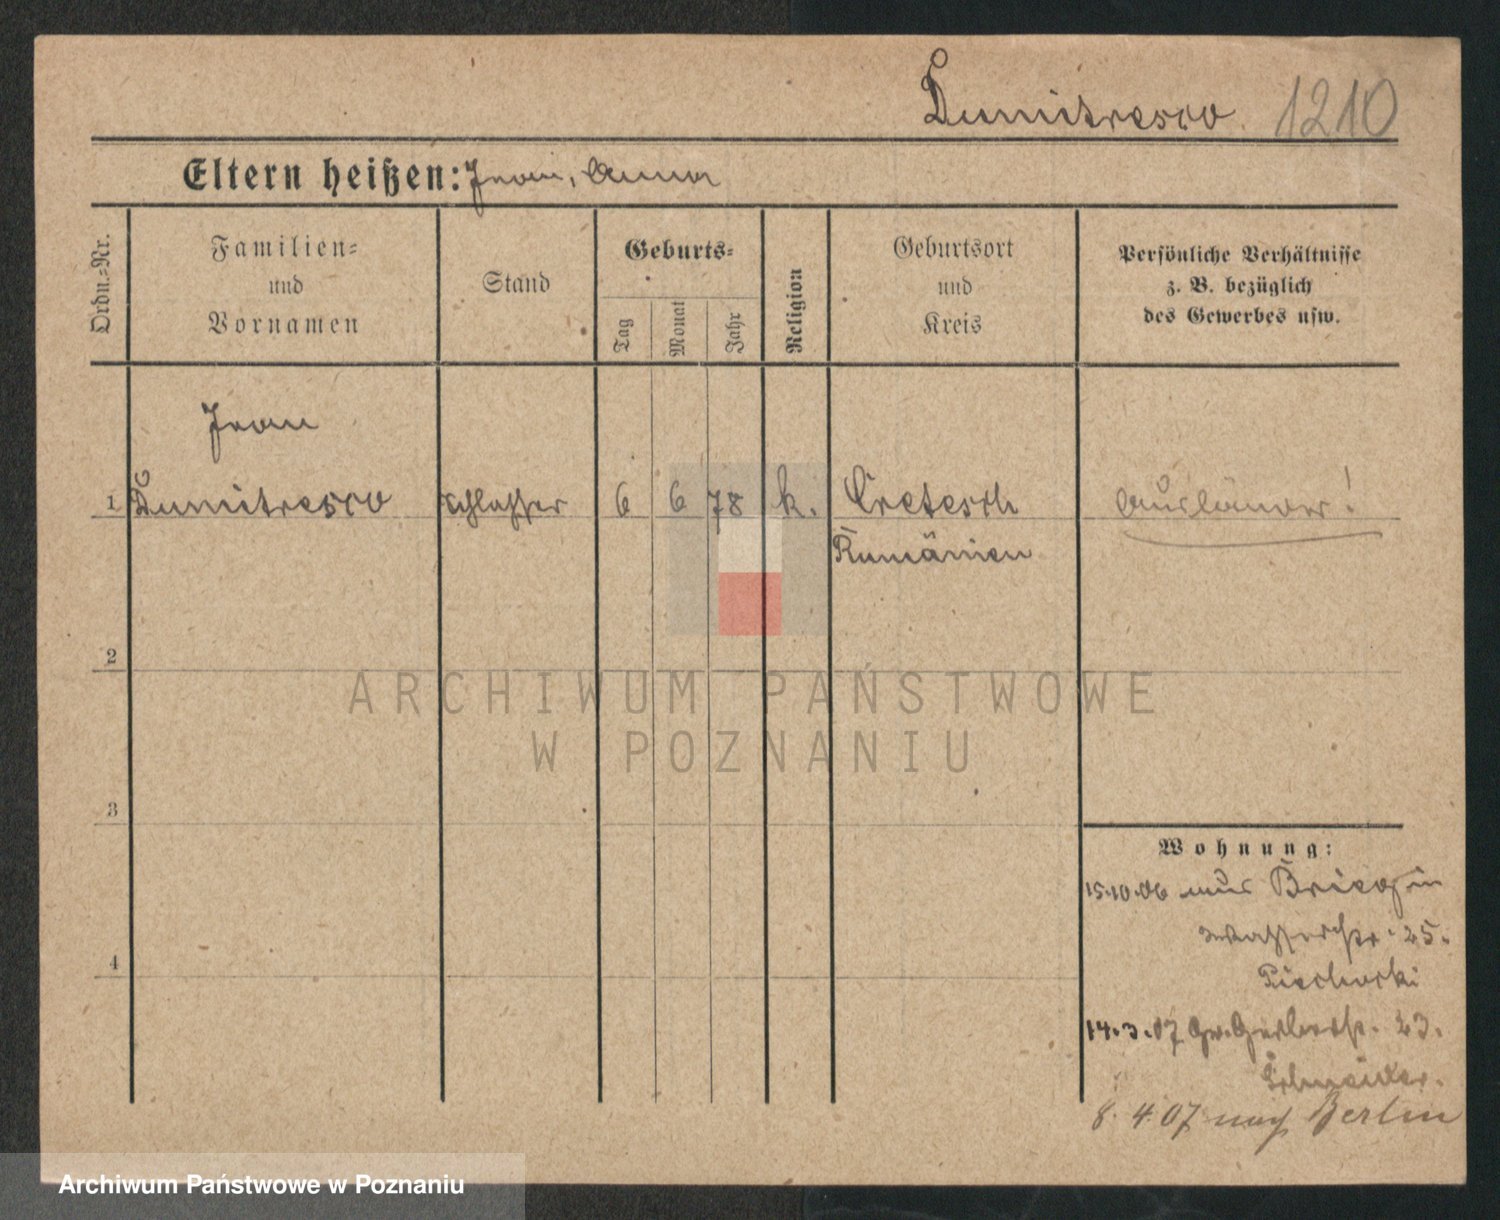 Dumitresco 1210
Eltern heißen: Ivan, Anna
Ordn.-Nr.
Familien-
und
Vornamen
Stand
Geburts-
Tag
Monat
Jahr
Religion
Geburtsort
und
Kreis
Persönliche Verhältnisse
z. B. bezüglich
des Gewerbes usw.
Ivan
1 Dumitresco Schlosser 6 6 78 k. Ausländer!
Rumänien
2
ARCHIWUM PAŃSTWOWE
W POZNANIU
3
Wohnung:
15.10.06 aus
Wasserstr. 25.
4
14.3.07 Gr. Gerberstr. 23.
Schneider.
8.4.07 nach Berlin
Archiwum Państwowe w Poznaniu